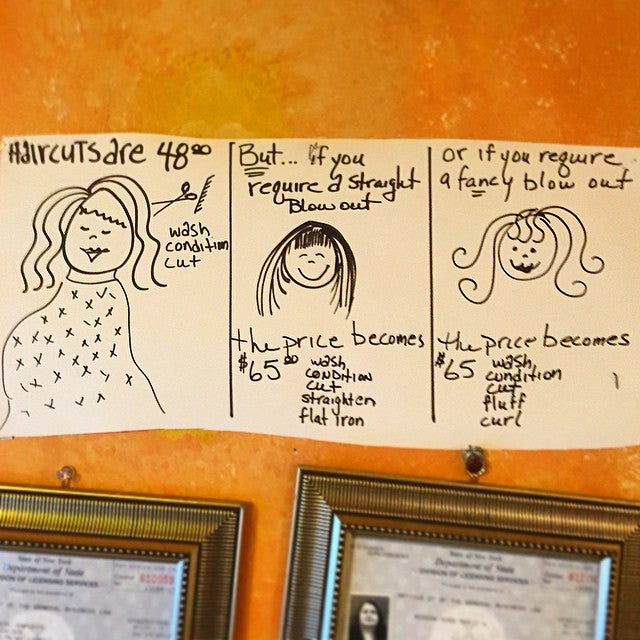 Haircuts are 48⁰⁰
wash
condition
cut
But... if you
require a straight
Blow out
the price becomes
$65⁰⁰ wash
condition
cut
straighten
flat iron
or if you require
a fancy blow out
the price becomes
$65 wash
condition
cut
fluff
curl
State of New York
Department of State
DIVISION OF LICENSING SERVICES
State of New York
Department of State
DIVISION OF LICENSING SERVICES